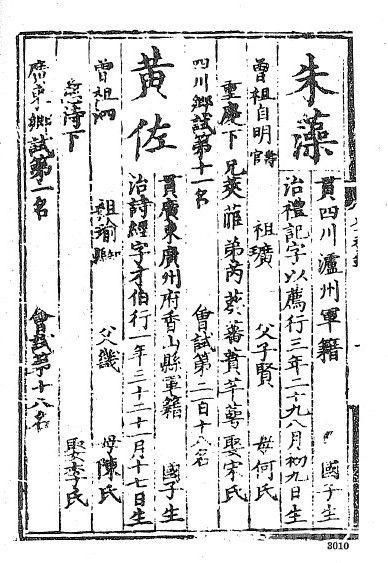 朱藻
貫四川瀘州軍籍 國子生
治禮記字以薦行三年二十九八月初九日生
曾祖自明 祖璸 父子賢 母何氏
重慶下 兄 弟 娶宋氏
四川鄉試第十一名 會試第二百十八名
黃佐
貫廣東廣州府香山縣軍籍 國子生
治詩經字才伯行一年三十二十一月十七日生
曾祖泗 祖瑜 知縣 父畿 母陳氏
下 娶李氏
廣東鄉試第一名 會試第十八名
3010